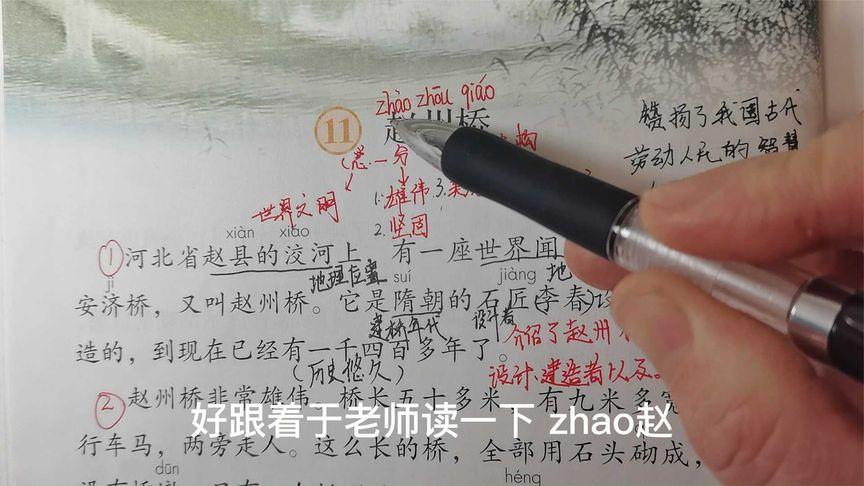 zhào zhōu qiáo
11 赵州桥
赞扬了我国古代
劳动人民的智慧
(总 一 分
构
世界文明
1.雄伟 3.美
2.坚固
xiàn xiáo
①河北省赵县的洨河上 有一座世界闻
地理位置
地
jì suí jiàng
安济桥，又叫赵州桥。它是隋朝的石匠(李春)设
建桥年代 设计者
介绍了赵州
造的，到现在已经有一千四百多年了。
(历史悠久)
设计.建造者以及。
②赵州桥非常雄伟。桥长五十多米，有九米多宽
好跟着于老师读一下 zhao赵
行车马，两旁走人。这么长的桥，全部用石头砌成，
dūn héng